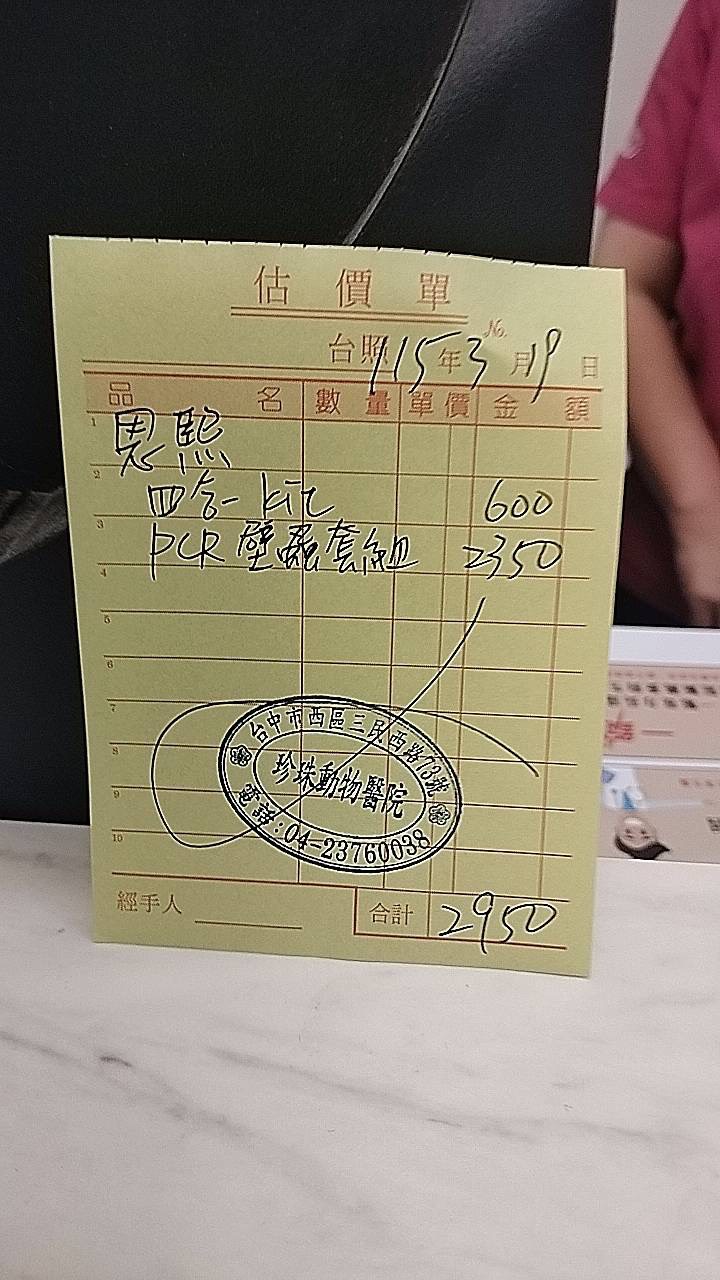 估價單
No.
台照 115年3月19日
品名 數量 單價 金額
1 恩熙
2 四合一 kit 600
3 PCR 壁蝨套組 2350
4
5
6
7
8
9
10
台中市西區三民西路73號
珍珠動物醫院
電話:04-23760038
經手人 合計 2950